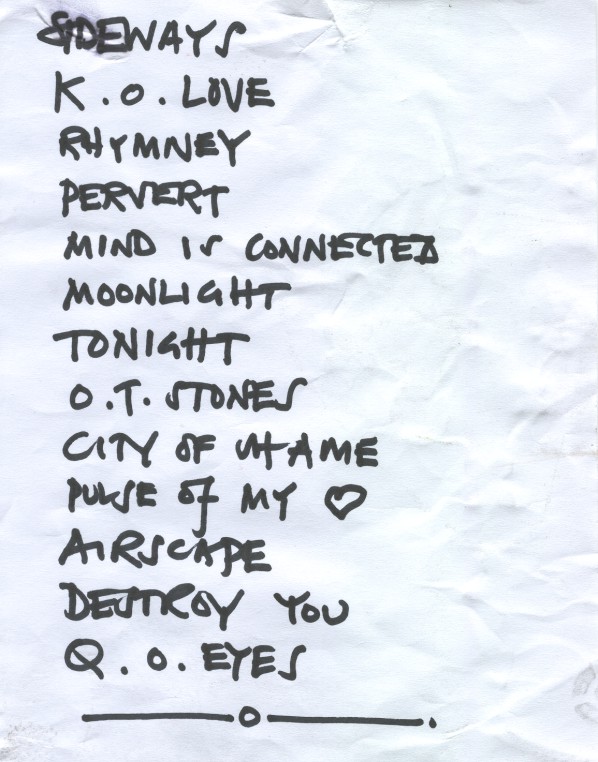 SIDEWAYS
K.O. LOVE
RHYMNEY
PERVERT
MIND IS CONNECTED
MOONLIGHT
TONIGHT
O.T. STONES
CITY OF SHAME
PULSE OF MY ♡
AIRSCAPE
DESTROY YOU
Q.O. EYES